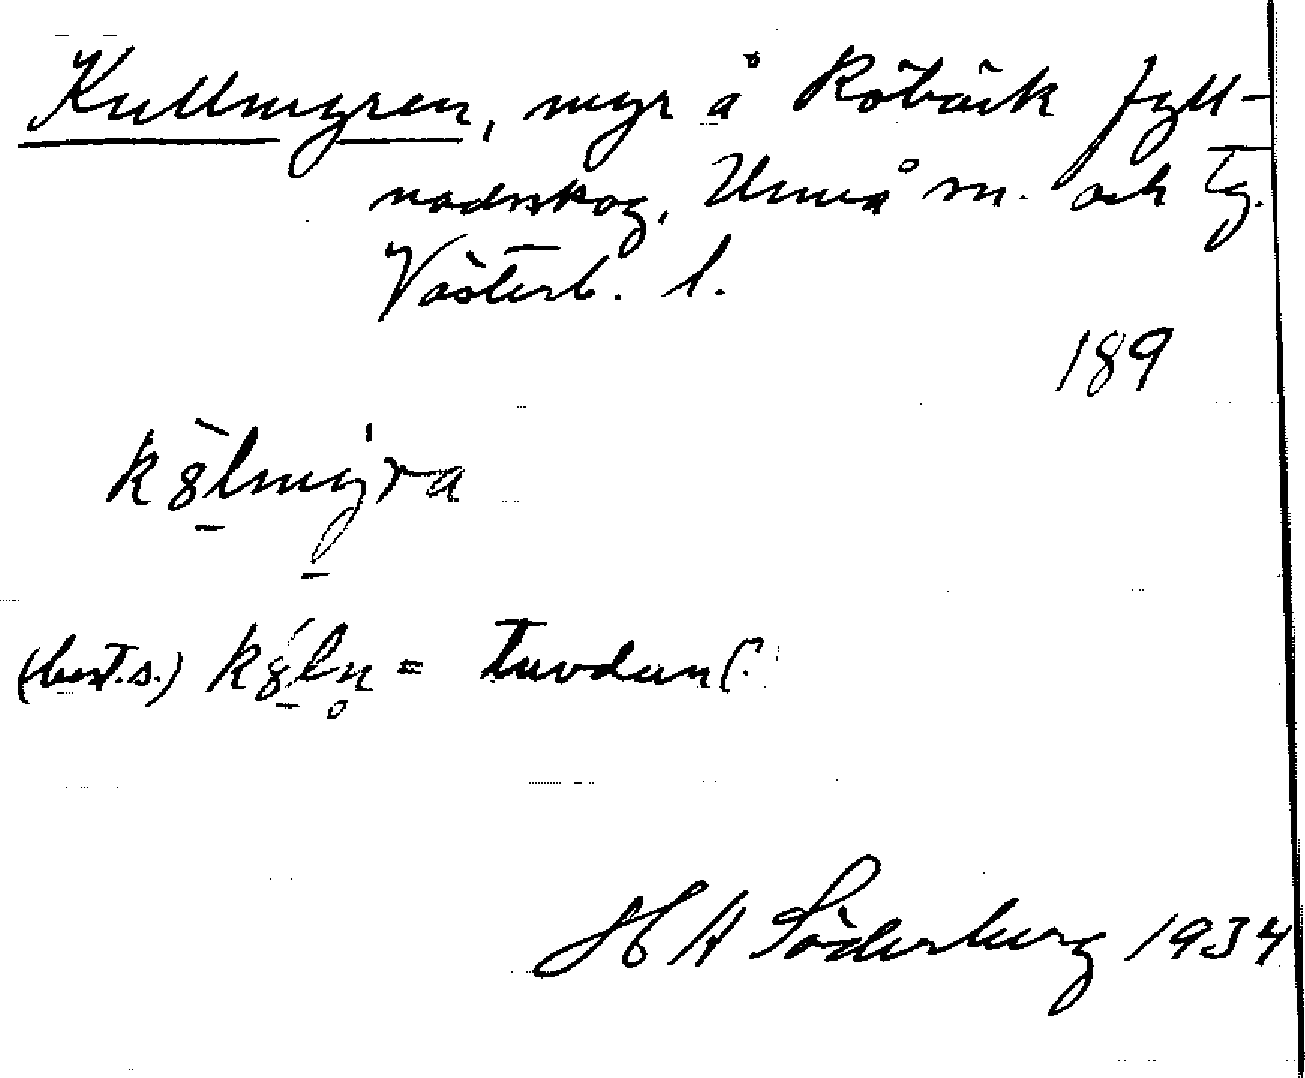 Kullmyren, myr å Röbäck fyll-
nadsskog, Umeå sn. och tg.
Västerb. l.
189
(best.s.) = tuvdun(?
H A Söderberg 1934